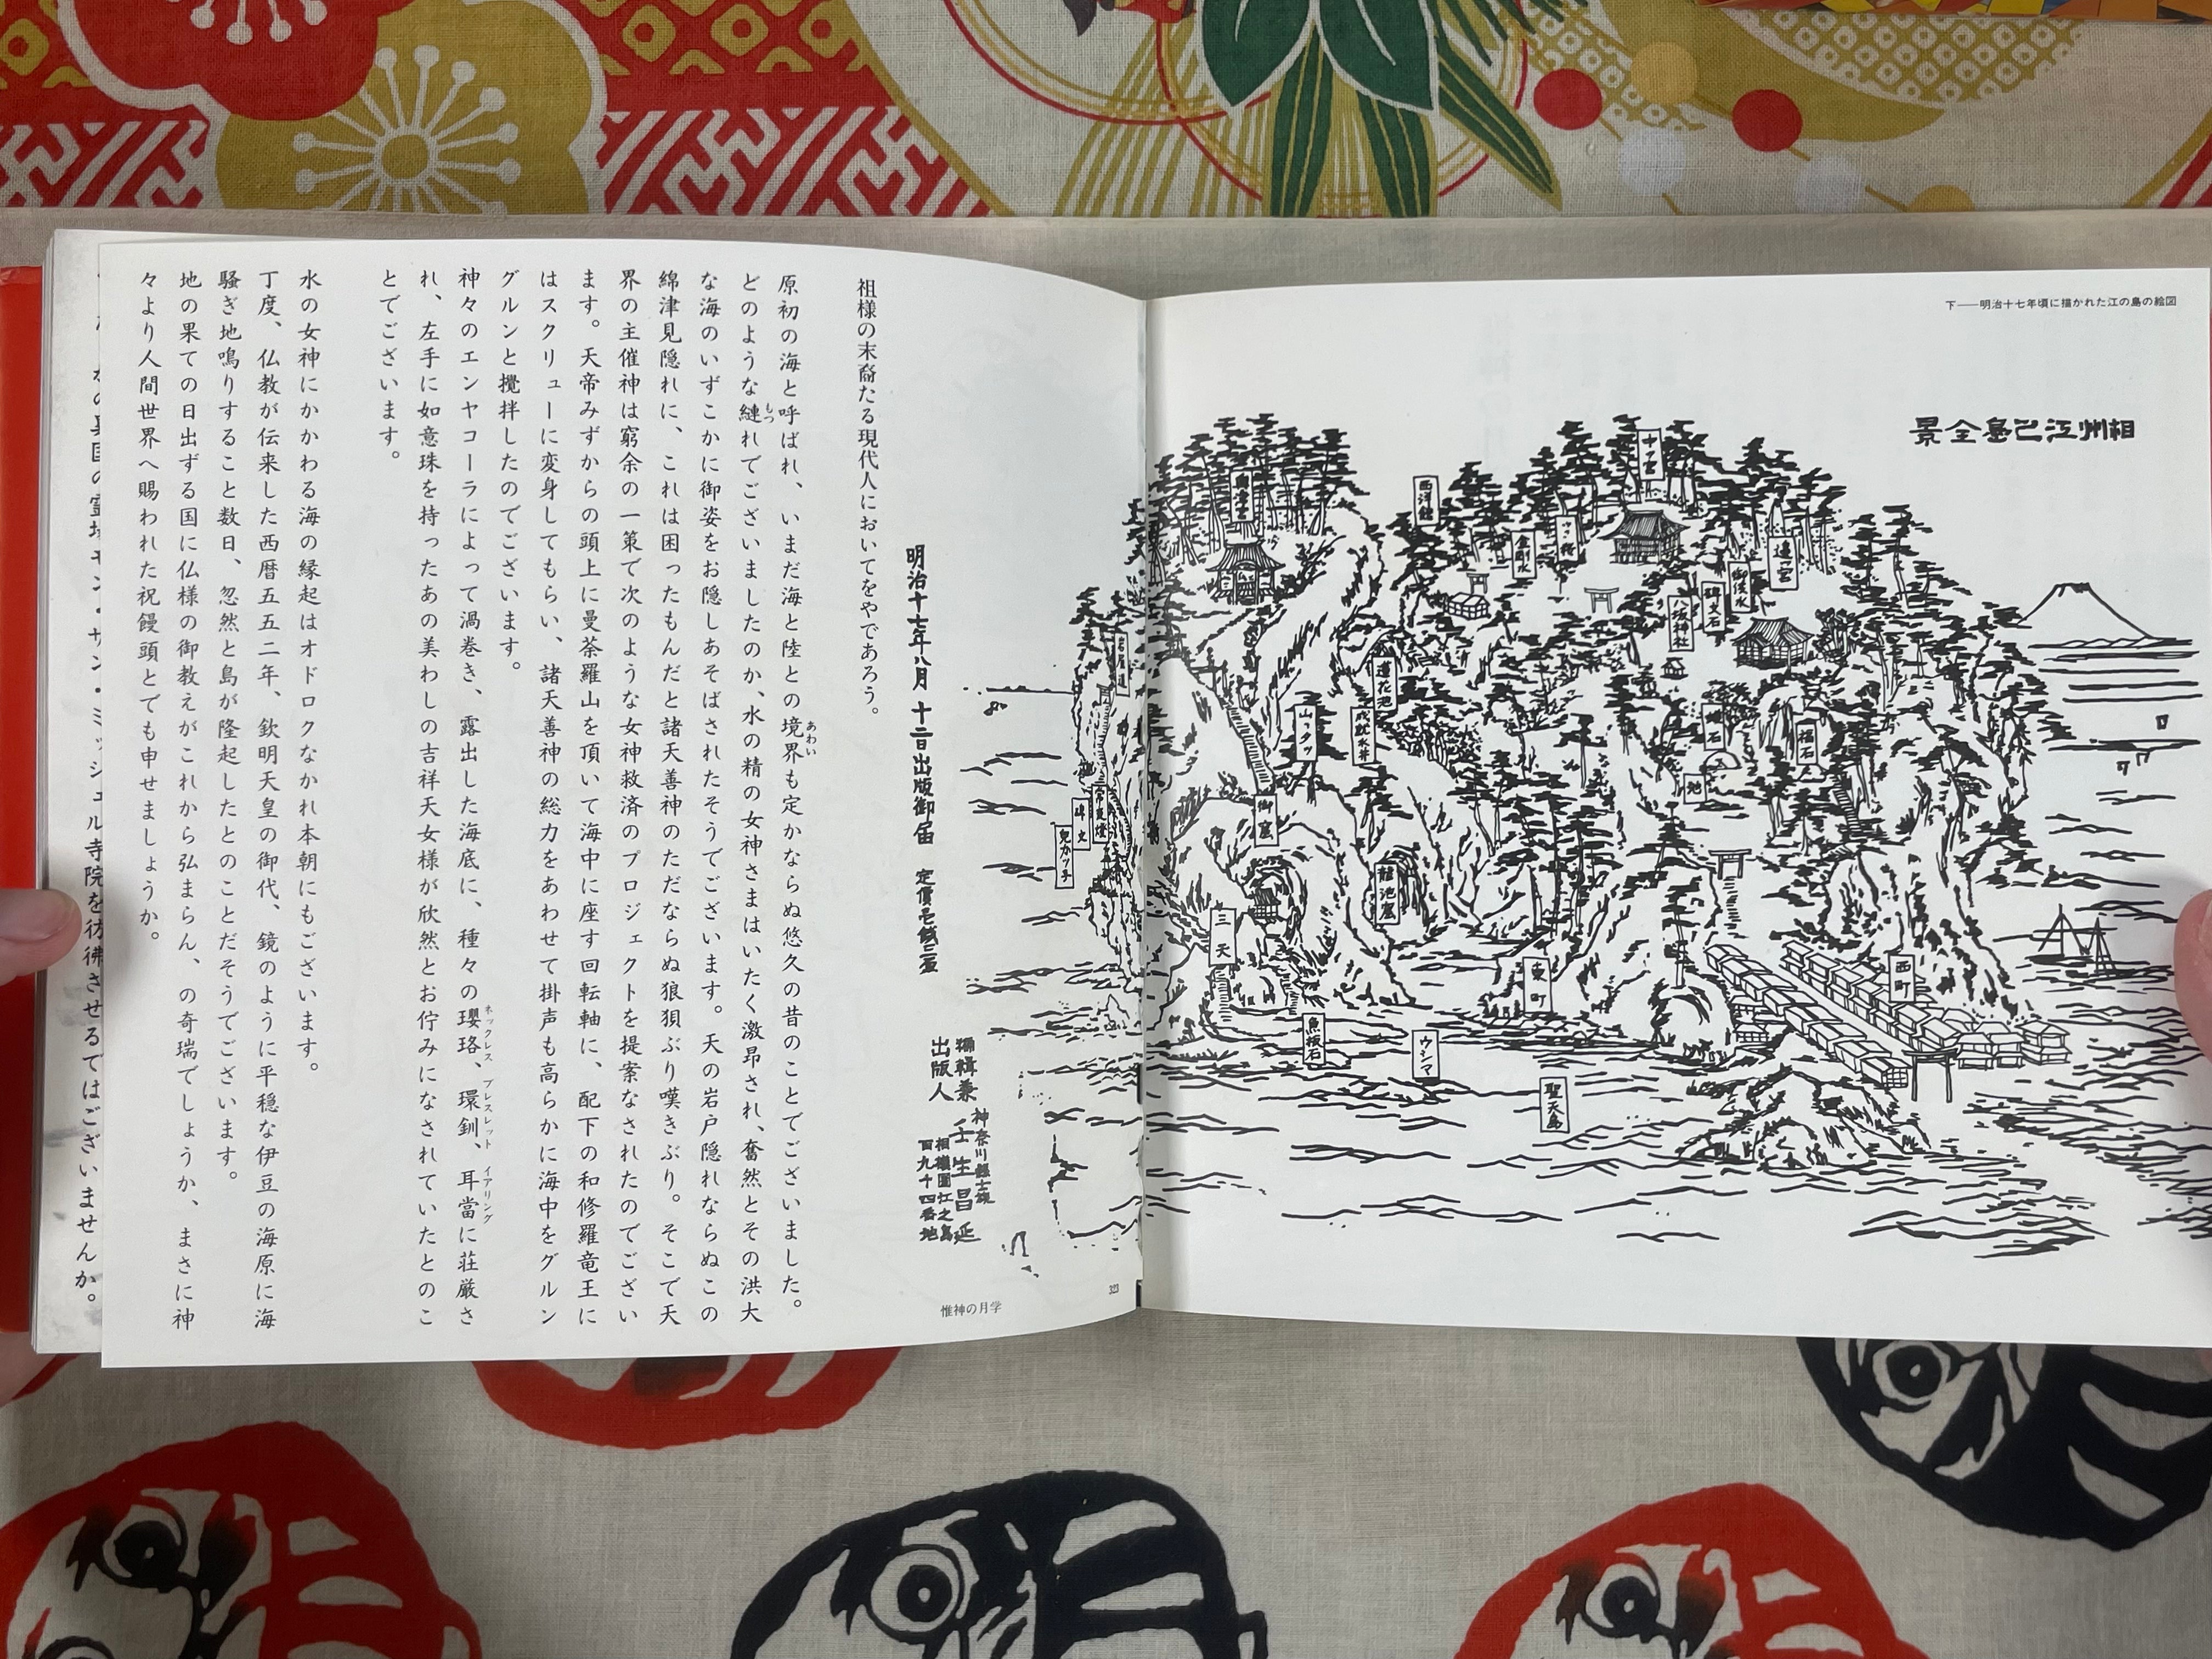 下——明治十七年頃に描かれた江の島の絵図
相州江己島全景
十ノ宮
奥津宮
西洋館
金剛水
辺ツ宮
御供水
碑文石
八坂神社
蓮花池
山ツタツ
福石
池
御窟
龍池窟
常夜燈
碑文
児カ淵
三天
東町
西町
魚板石
ウシマ
聖天島
明治十七年八月十二日出版御届 定價壱銭三厘
編輯兼
出版人
神奈川縣士族
壬生昌延
相模國江之島
百九十四番地
祖様の末裔たる現代人においてをやであろう。
原初の海と呼ばれ、いまだ海と陸との境界も定かならぬ悠久の昔のことでございました。
あわい
どのような縺れでございましたのか、水の精の女神さまはいたく激昂され、奮然とその洪大
もつ
な海のいずこかに御姿をお隠しあそばされたそうでございます。天の岩戸隠れならぬこの
綿津見隠れに、これは困ったもんだと諸天善神のただならぬ狼狽ぶり嘆きぶり。そこで天
界の主催神は窮余の一策で次のような女神救済のプロジェクトを提案なされたのでござい
ます。天帝みずからの頭上に曼荼羅山を頂いて海中に座す回転軸に、配下の和修羅竜王に
はスクリューに変身してもらい、諸天善神の総力をあわせて掛声も高らかに海中をグルン
グルンと攪拌したのでございます。
神々のエンヤコーラによって渦巻き、露出した海底に、種々の瓔珞、環釧、耳當に荘厳さ
ネックレス ブレスレット イアリング
れ、左手に如意珠を持ったあの美わしの吉祥天女様が欣然とお佇みになされていたとのこ
とでございます。
水の女神にかかわる海の縁起はオドロクなかれ本朝にもございます。
丁度、仏教が伝来した西暦五五二年、欽明天皇の御代、鏡のように平穏な伊豆の海原に海
騒ぎ地鳴りすること数日、忽然と島が隆起したとのことだそうでございます。
地の果ての日出ずる国に仏様の御教えがこれから弘まらん、の奇瑞でしょうか、まさに神
々より人間世界へ賜われた祝饅頭とでも申せましょうか。
の異国の霊場モン・サン・ミッシェル寺院を彷彿させるではございませんか。
惟神の月学
323